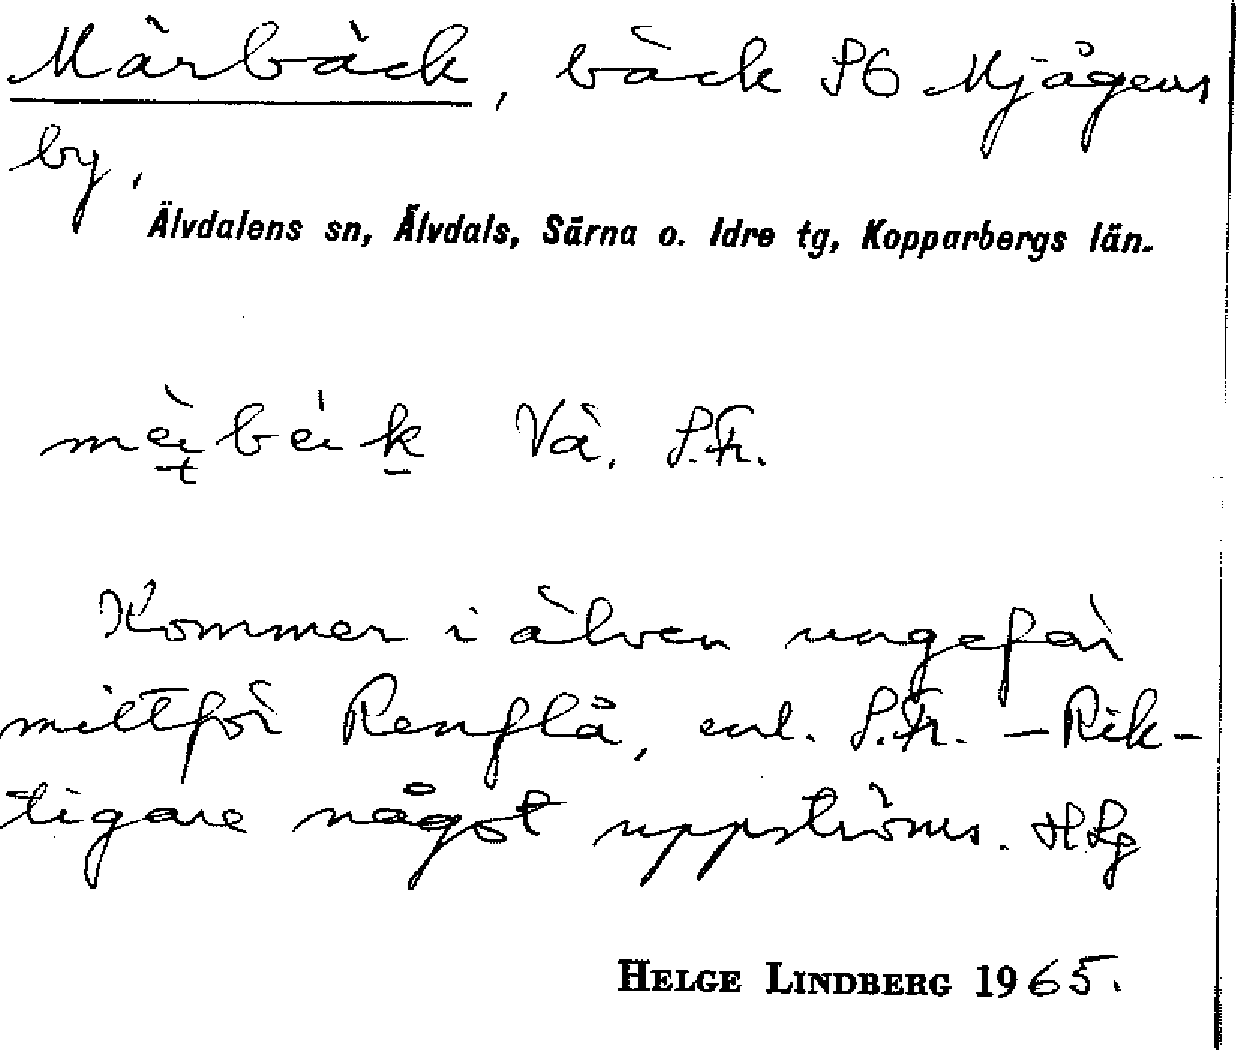 Märbäck, bäck SÖ Mjågens
by.
Älvdalens sn, Älvdals, Särna o. Idre tg, Kopparbergs län.
Vä. S.Fr.
Kommer i älven ungefär
mittför Renflå, enl. S.Fr. – Rik-
tigare något uppströms. HLg
HELGE LINDBERG 1965.